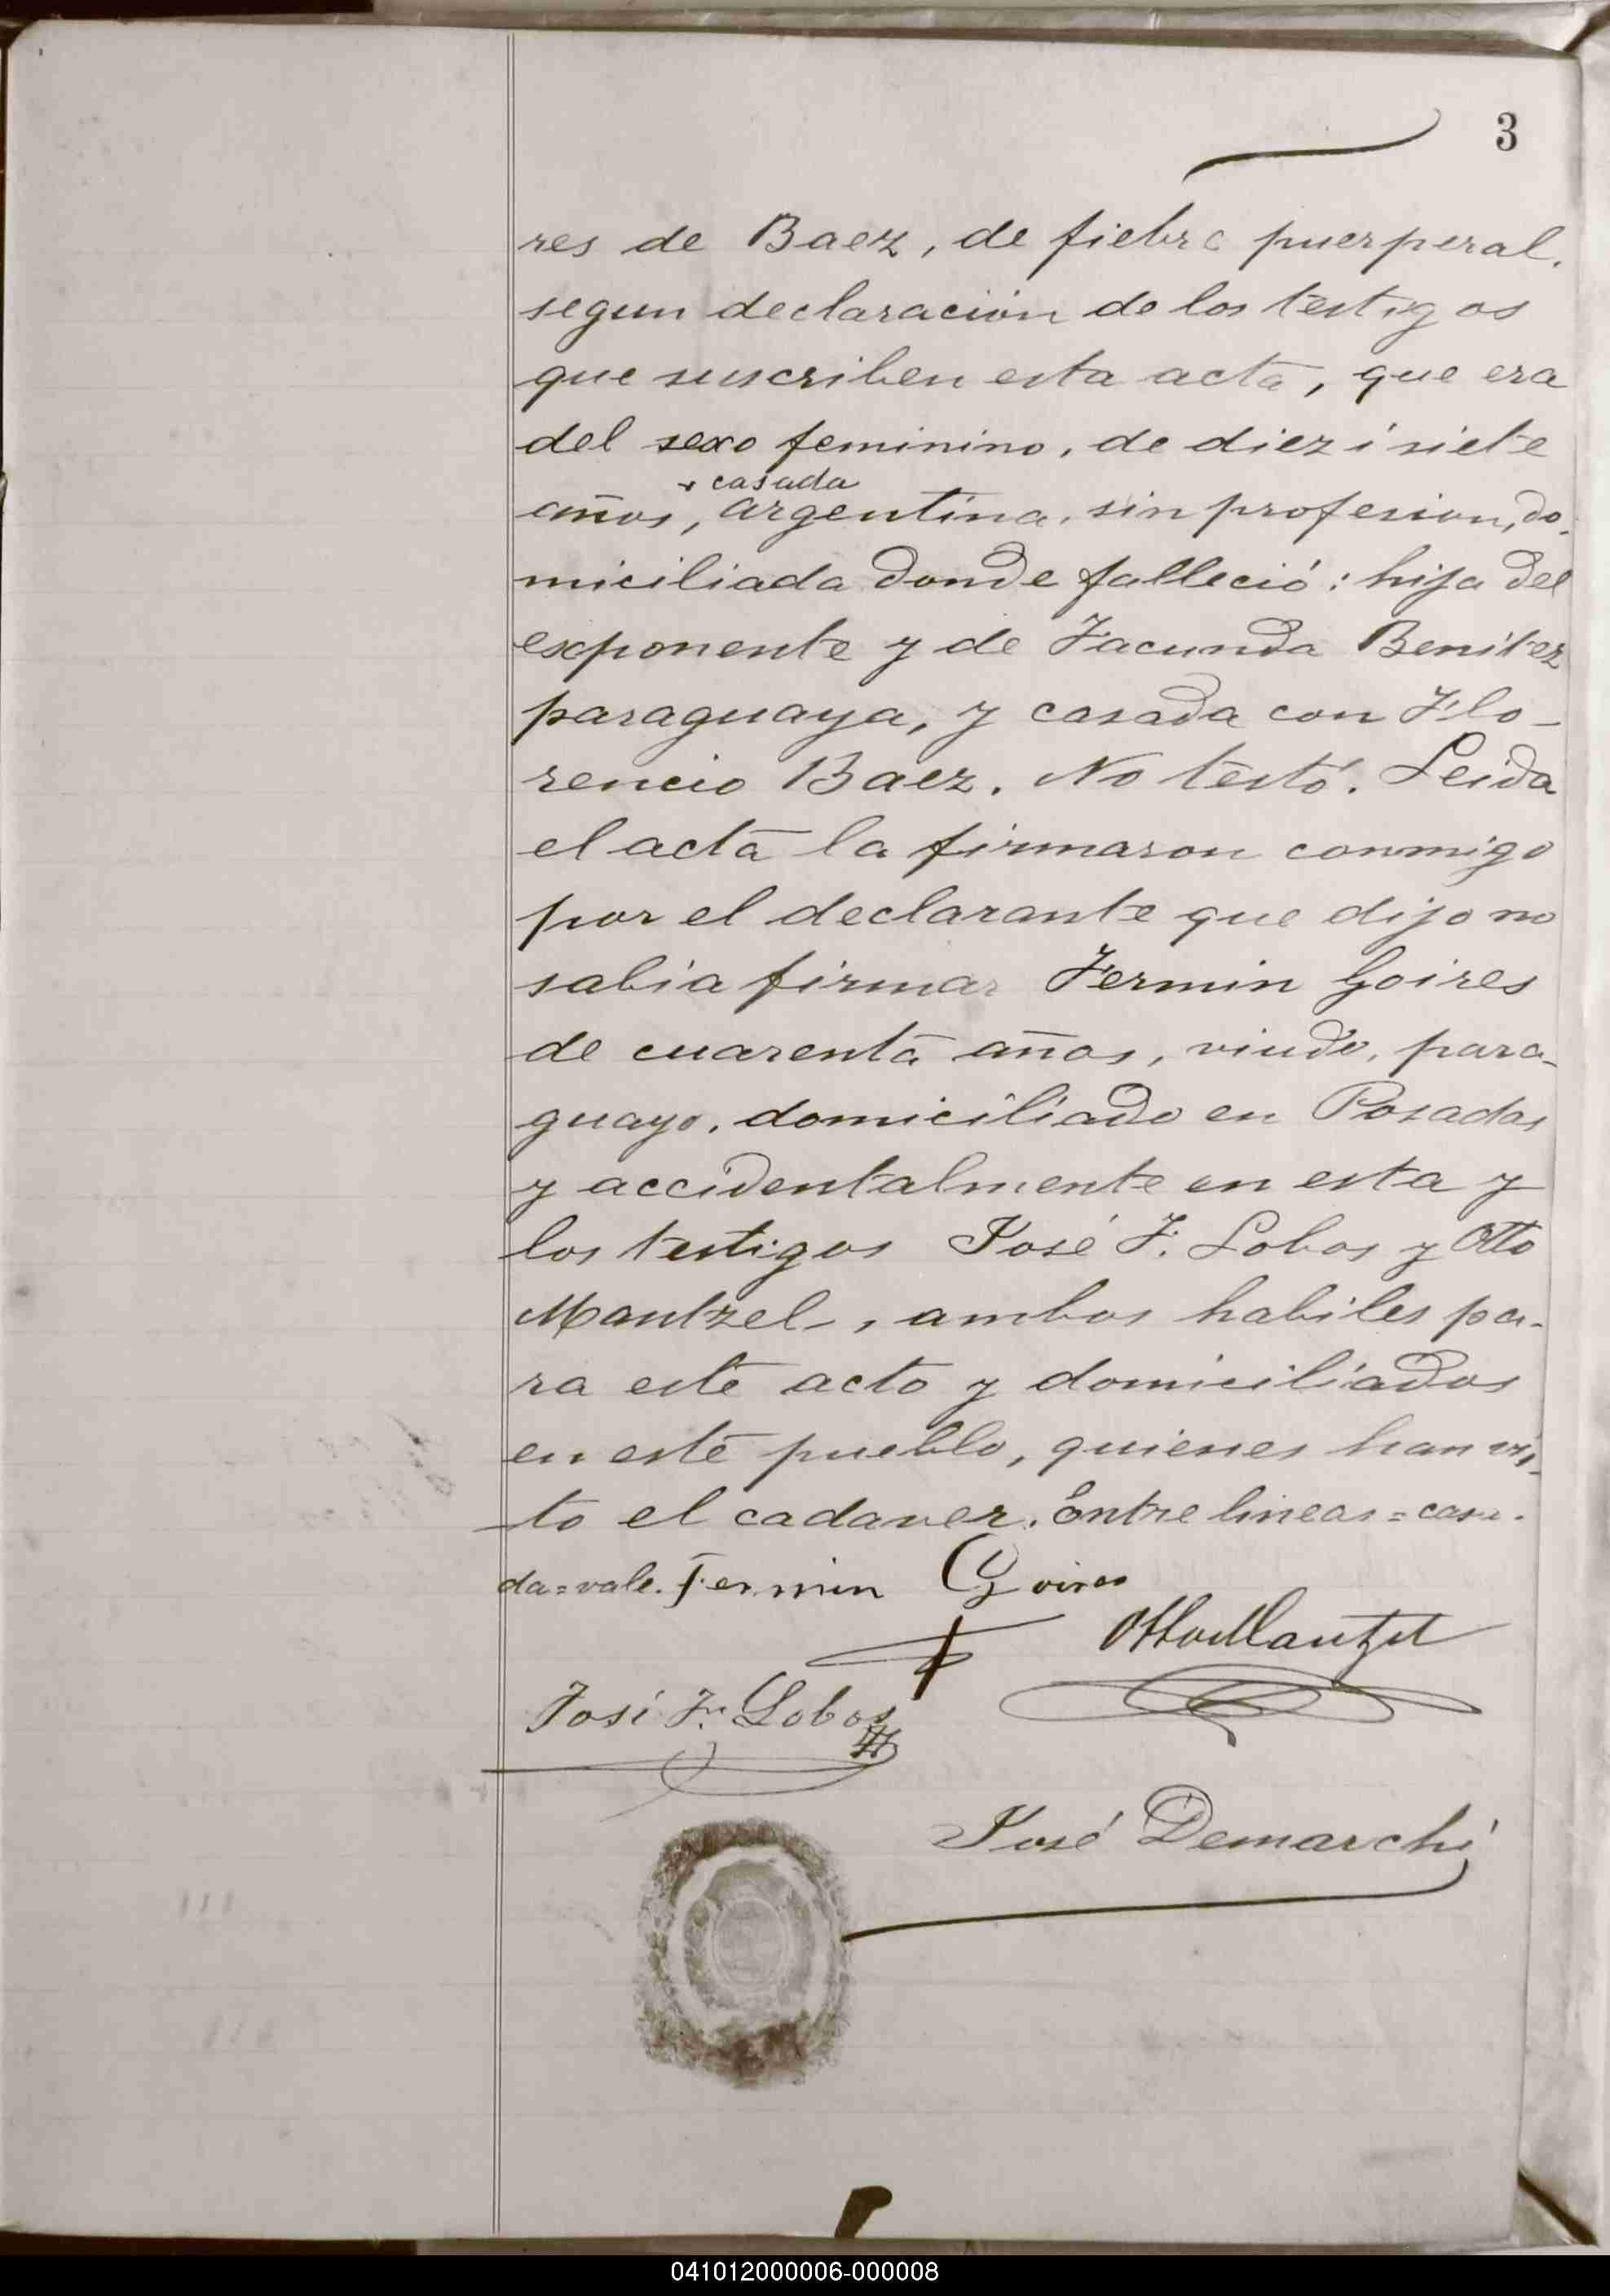 3
res de Baez, de fiebre puerperal.
segun declaracion de los testigos
que suscriben esta acta, que era
del sexo feminino, de diez i siete
casada
años, argentina, sin profesion, do-
miciliada donde falleció: hija del
exponente y de Facunda Benitez
paraguaya, y casada con Flo-
rencio Baez. No testó. Leida
el acta la firmaron conmigo
por el declarante que dijo no
sabia firmar Fermin Goires
de cuarenta años, viudo, para-
guayo, domiciliado en Posadas
y accidentalmente en esta y
los testigos José F. Lobos y Otto
Mantzel, ambos habiles pa-
ra este acto y domiciliados
en este pueblo, quienes han vis-
to el cadaver. Entre lineas = casa-
da = vale. Fermin Goires
Otto Mantzel
José F. Lobos
José Demarchi
041012000006-000008